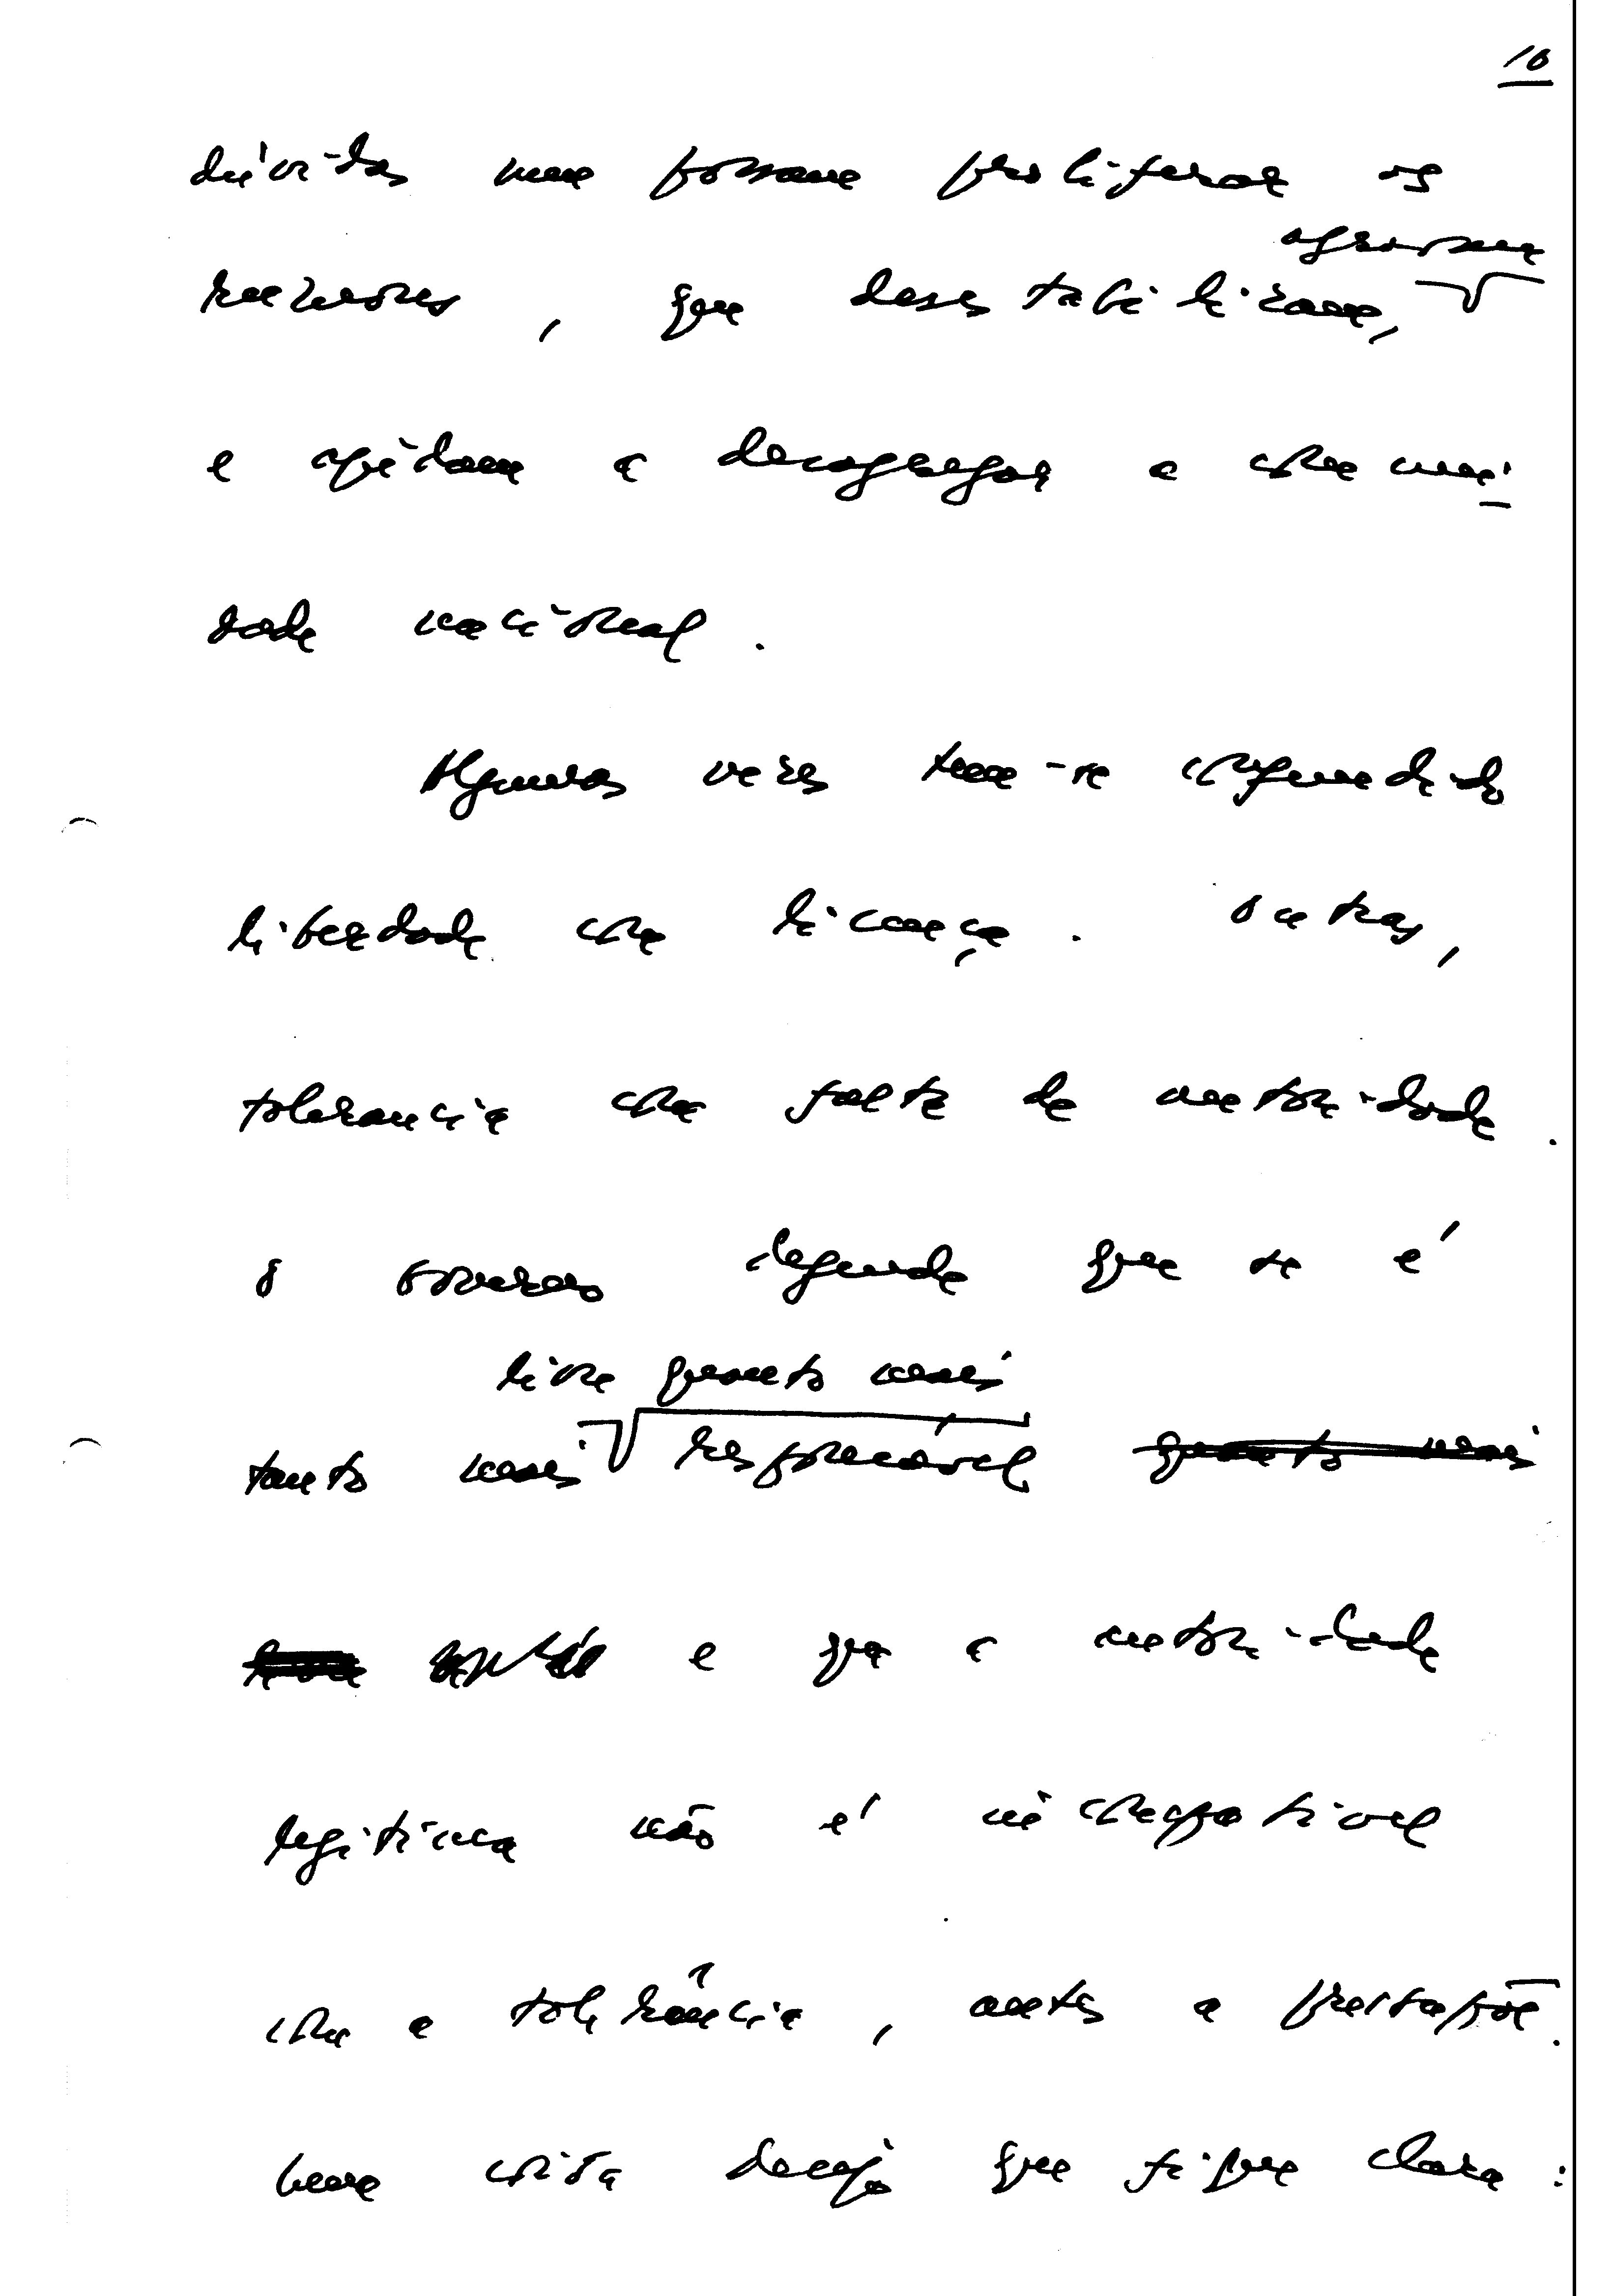 10
dúvidas nem possam proliferar os
agravam
rumores, que desestabilizam,
e ajudam a desagregar a comuni
dade nacional.
Algumas vezes tem-se confundido
liberdade com licença. Outras,
tolerancia com falta de autoridade.
O Governo defende que se é
livre quanto mais
tanto mais responsável quanto mais
livre e que a autoridade
legitima não é incompatível
com a tolerância, antes a pressupõe.
Uma coisa desejo que fique clara: